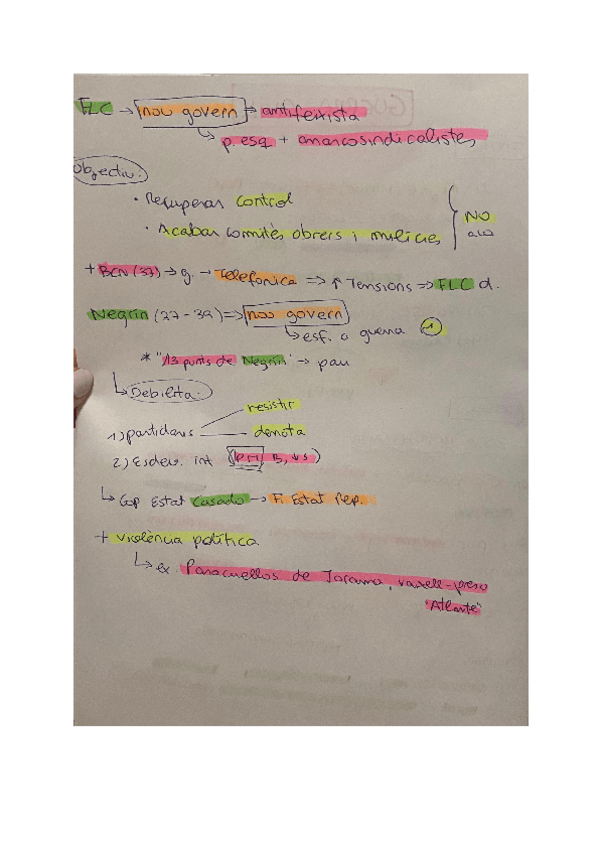 FLC → nou govern → antifeixista
↳ p. esq + anarcosindicalistes
Objectiu:
· Recuperar control
· Acabar comitès obrers i milícies
NO
+ BCN (37) → g. → Telefonica => ↑ Tensions => FLC d.
Negrín (37-39) => nou govern
↳ esf. a guerra
* "13 punts de Negrín" → pau
↳ Debilita:
1) partidaris
resistir
derrota
2) Esdev. int
↳ Cop Estat Casado → Fi Estat Rep.
+ violència política
↳ ex. Paracuellos de Jarama, vaixell-presó
"Atlante"